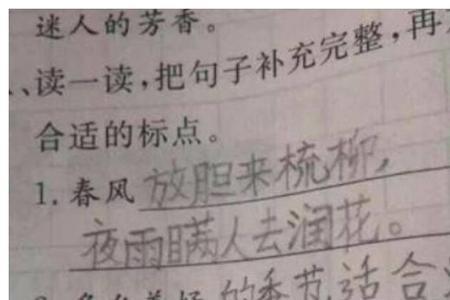 迷人的芳香。
、读一读，把句子补充完整，再
合适的标点。
1. 春风放胆来梳柳，
夜雨瞒人去润花。
的季节适合